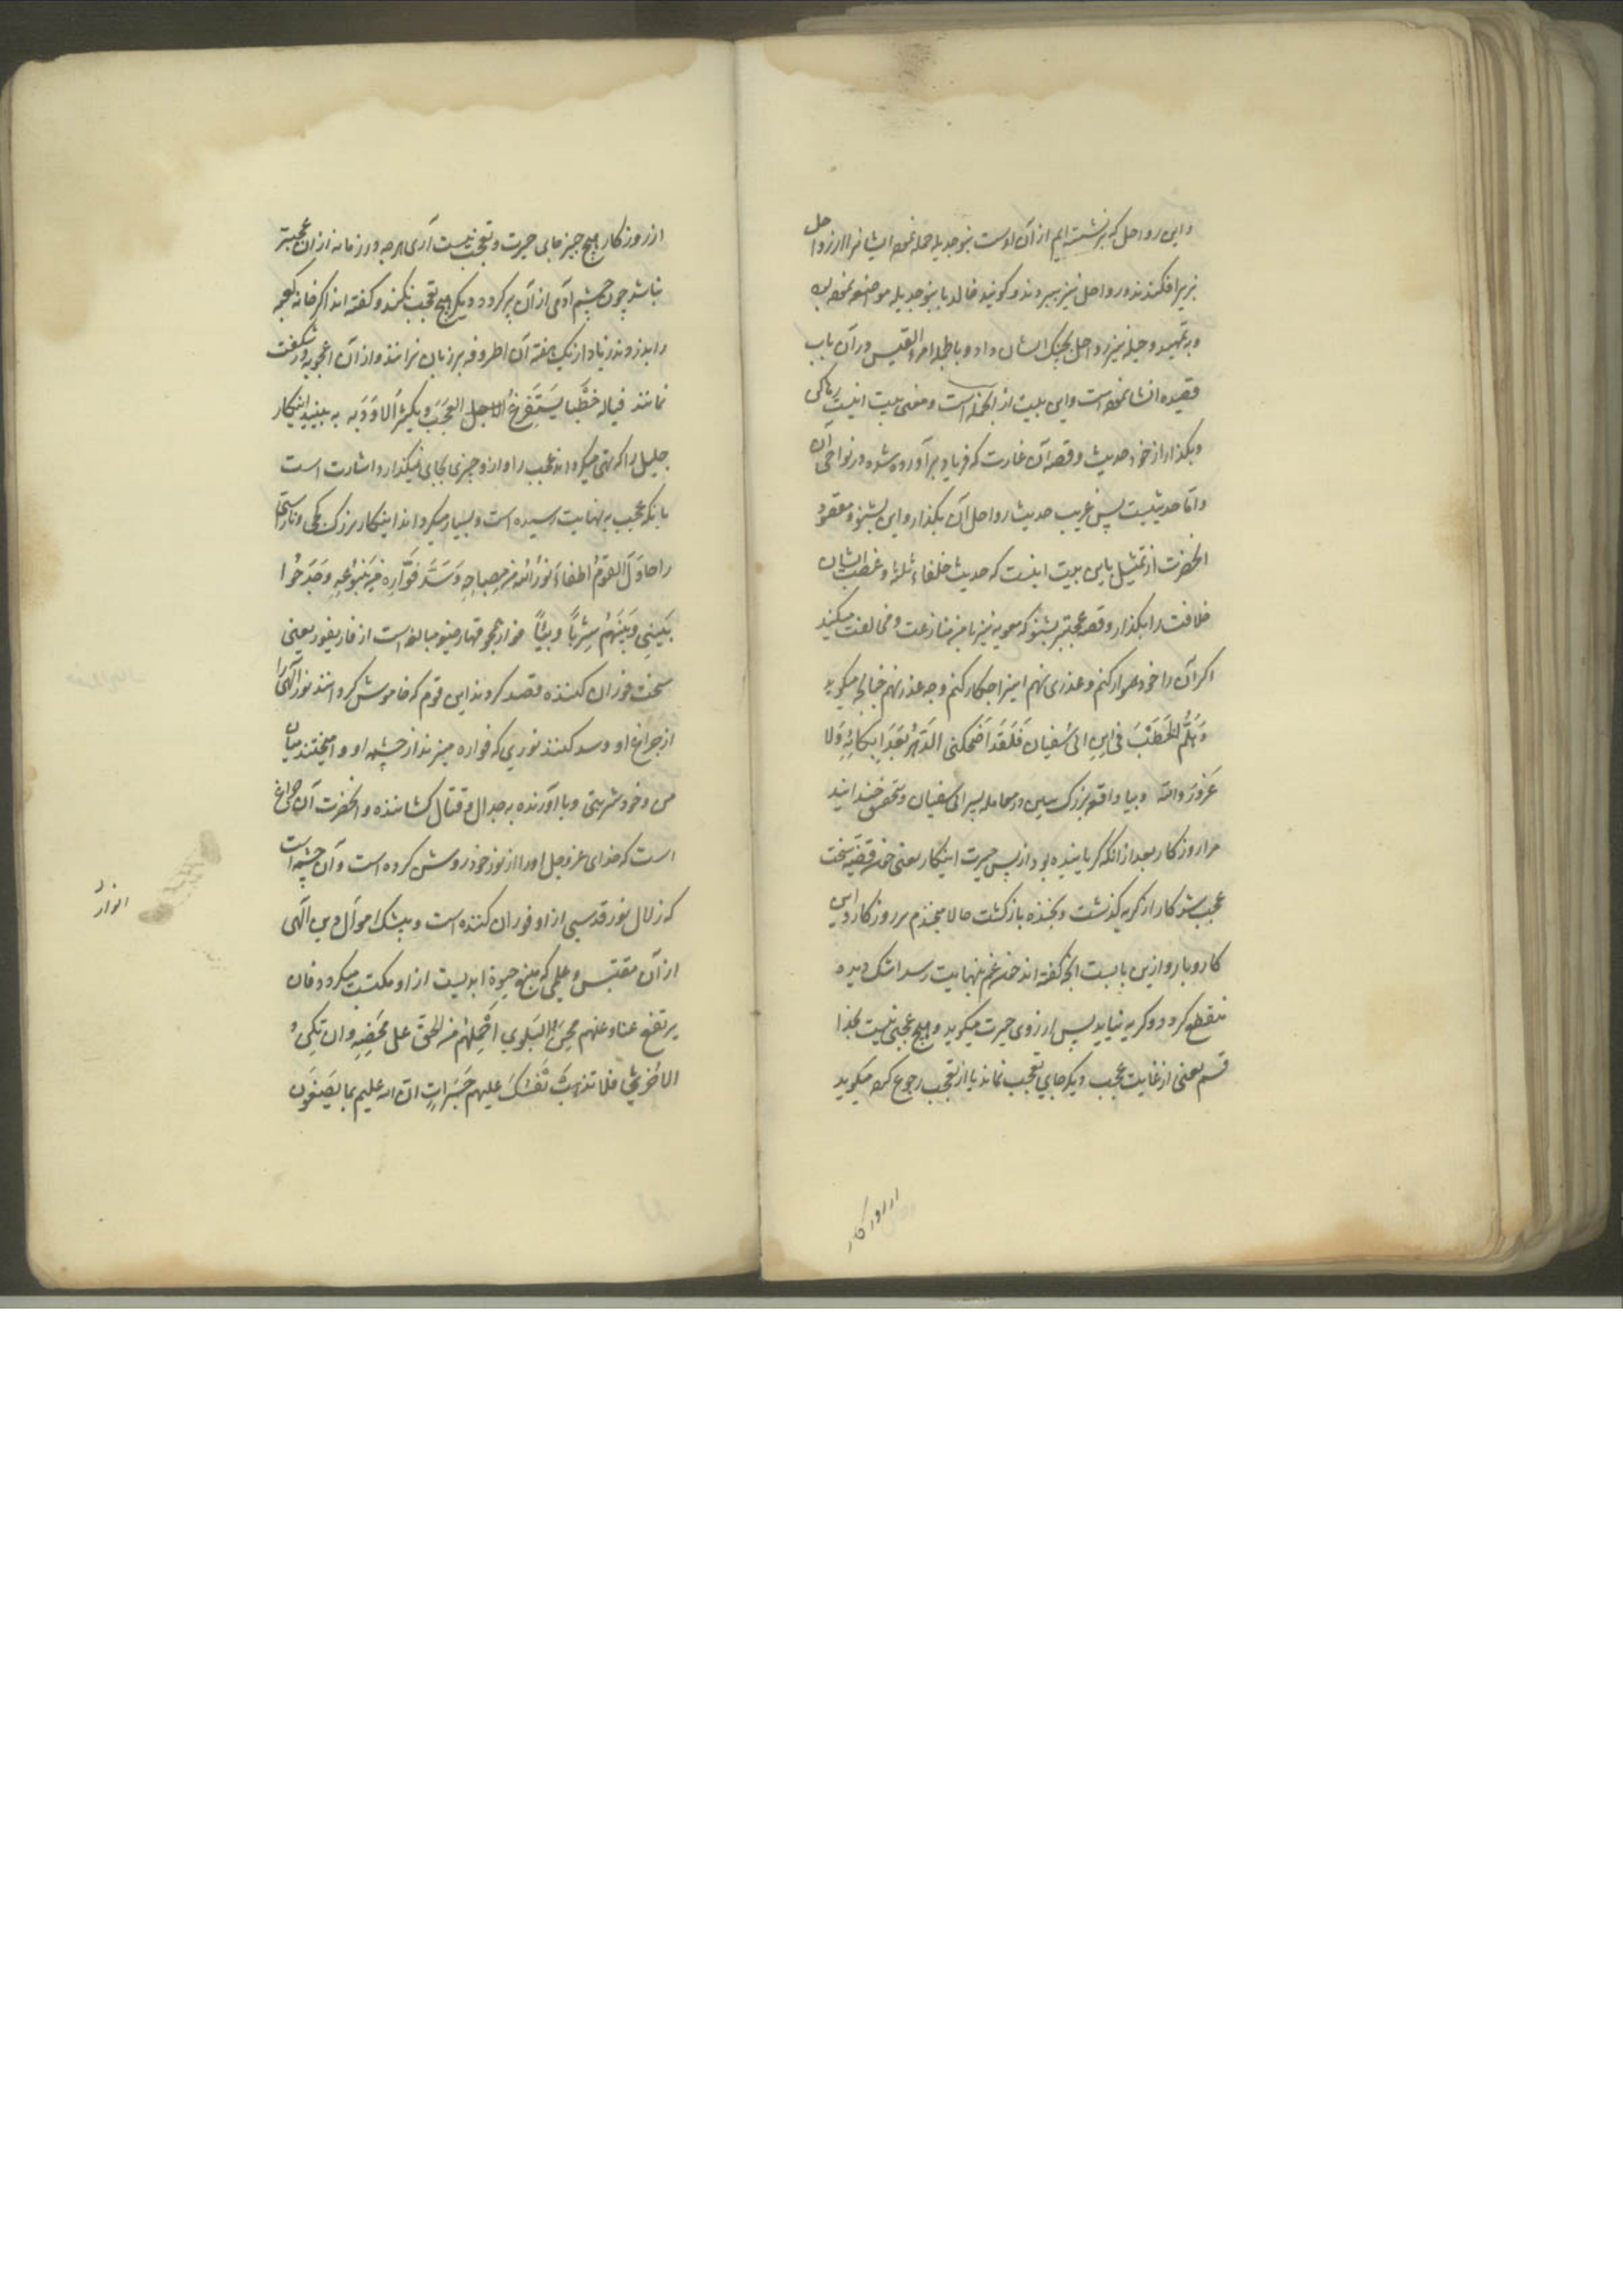 و این رواحل که برنشسته ایم از آن اوست بنو جدیله حمله نموده ایشانرا از رواحل
بزیر افکندند و رواحل نیز ببردند و گویند خالد با بنو جدیله مواضعه نموده بود
و تمهید و حیله نیز رواحل بچنگ ایشان داد و بالجمله امرؤ القیس در آن باب
قصیده انشا نموده است و این بیت از آنجمله است و معنی بیت اینست رها کن
و بگذار از خود حدیث و قصه آن غارت که فریاد برآورده شده در نواحی آن
و اما حدیثیست پس غریب حدیث رواحل آن بگذار و این بشنو و مقصود
آنحضرت از تمثیل باین بیت اینست که حدیث خلفاء ثلثه و غصب ایشان
خلافت را بگذار و قصه عجبتر بشنو که معویه نیز با من منازعت و مخالفت میکند
اگر آن را خود هموار کنم و عذری نهم این را چکار کنم و چه عذر نهم چنانچه میگوید
وَهَلُمَّ الْخَطْبَ فی ابنِ ابی سُفیان فَلَقَد اَضْحَکنی الدَّهْرُ بَعْدَ اِبْکائِهِ وَلا
غَرْوَ وَاللّه و بیا واقعه بزرگ ببین در معامله پسر ابی سفیان و بتحقیق خندانید
مرا روزگار بعد از آنکه گریانیده بود از پس حیرت اینکار یعنی چون قضیه سخت
عجب شد کار از گریه گذشت و بخنده بازگشت حالا میخندم بر روزگار و این
کار و بار و ازین بابست آنچه گفته اند چون غم بنهایت رسد اشک دیده
منقطع گردد و گریه نیاید پس از روی حیرت میگوید و هیچ عجبی نیست بخدا
قسم یعنی از غایت عجب دیگر جای تعجب نماند یا از تعجب رجوع کرده میگوید
از روزگار
از روزگار هیچ چیز جای حیرت و تعجب نیست آری هرچه در زمانه از آن عجبتر
نباشد چون چشم آدمی از آن پر گردد دیگر هیچ تعجب نکند و گفته اند اگر خانه کعبه
را بدزدند زیاد از یک هفته آن اطروفه بر زبان نرانند و از آن اعجوبه در شگفت
نمانند فیاله خَطْباً یَسْتَفْرِغُ العَجَبَ ویُکثِرُ الاَوَدَ به به بینید اینکار
جلیل را که تهی میگرداند عجب را و ازو چیزی بجای نمیگذارد اشارت است
بانکه عجب به نهایت رسیده است و بسیار میگرداند اینکار بزرگ کجی و ناراستی
را حاوَلَ القومُ اِطفاءَ نُورِ اللّه من مِصباحِهِ وَسَدَّ فَوّارِهِ مِن یَنْبُوعِهِ وَجَدَحُوا
بَیْنِی وَبَیْنَهُمْ شِرْباً وبیئاً فوار همچو قهار صیغه مبالغه است از فار یفور یعنی
سخت فوران کننده قصد کردند این قوم که خاموش گردانند نور الهی را
از چراغ او و سد کنند نوری که فواره میزند از چشمه او و آمیختند میان
من و خود شربتی وبا آورنده به جدال و قتال کشاننده و آنحضرت آن چراغ
است که خدای عز و جل او را از نور خود روشن کرده است و آن چشمه است
که زلال نور قدسی از او فوران کننده است و بیشک اموال دین الهی
انوار
از آن مقتبس و علمی که منبع حیوة ابدیست از او مکتسب میگردد فان
یرتفع عنا و عنهم مِحَنُ البَلْوی اَحْمِلْهُمْ من الحَقّ علی مَحْضِهِ وان تکن
الاُخْری فلا تَذْهَبْ نَفْسُکَ علیهم حَسَراتٍ ان اللّه علیم بما یَصْنَعُون